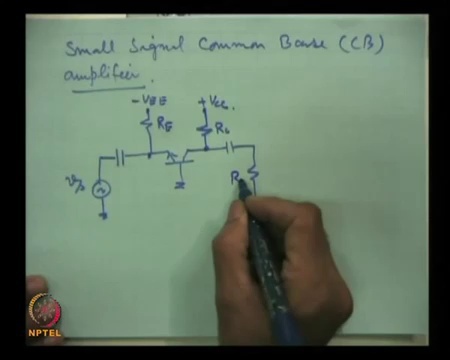 Small Signal Common Base (CB)
amplifier.
-VEE +VCC
RE RL
vs
R
NPTEL